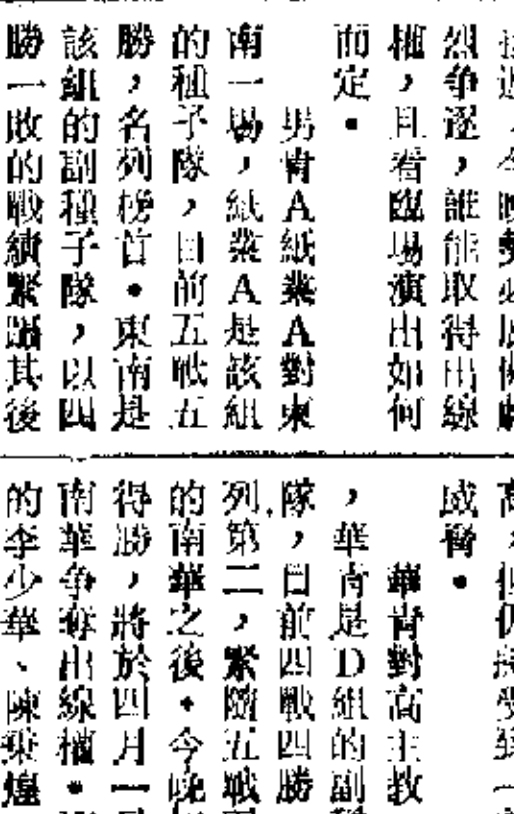 烈争逐，誰能取得出線
權，且看臨場演出如何
而定。
男青A紙業A對東
南一場，紙業A是該組
的種子隊，目前五戰五
勝，名列榜首。東南是
該組的副種子隊，以四
勝一敗的戰績緊躡其後
威脅。
華青對高主教
，華青是D組的副
隊，目前四戰四勝
列第二，緊隨五戰
的南華之後。今晚
得勝，將於四月一
南華争奪出線權。
的李少華、陳秉煌